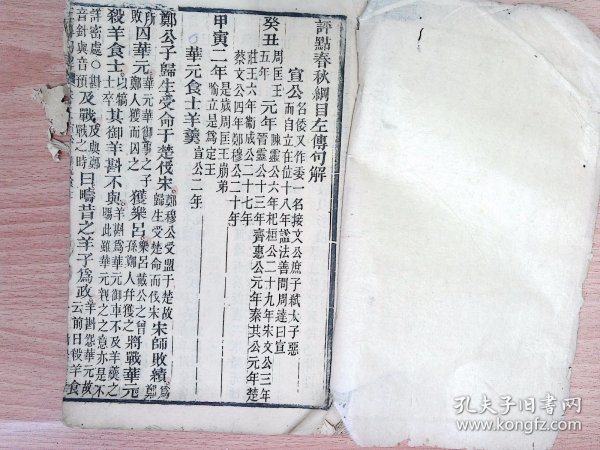 評點春秋綱目左傳句解
宣公名倭又作委一名接文公庶子弒太子惡
而自立在位十八年謚法善問周達曰宣
癸丑周匡王五年元年陳靈公六年杞桓公二十九年宋文公三年
晉靈公十三年齊惠公元年秦共公元年楚
莊王六年衛成公二十七年
蔡文公四年鄭穆公二十年
甲寅二年是歲周匡王崩弟
瑜立是爲定王
華元食士羊羹宣公二年
鄭公子歸生受命于楚伐宋鄭穆公受盟于楚故歸生受楚命而伐宋宋師敗績鄭
所敗囚華元華元華御事之子鄭人獲而囚之獲樂呂樂呂戴公之曾孫鄭人幷獲之將戰華元
殺羊食士以犒士卒其御羊斟不與羊斟爲華元御車不及羊羹之賜此雖華元親之之意亦是不
詳密處○斟音針與音預及戰及與鄭戰之時曰疇昔之羊子爲政羊斟怨華元故云前日殺羊食
孔夫子旧书网
www.kongfz.com